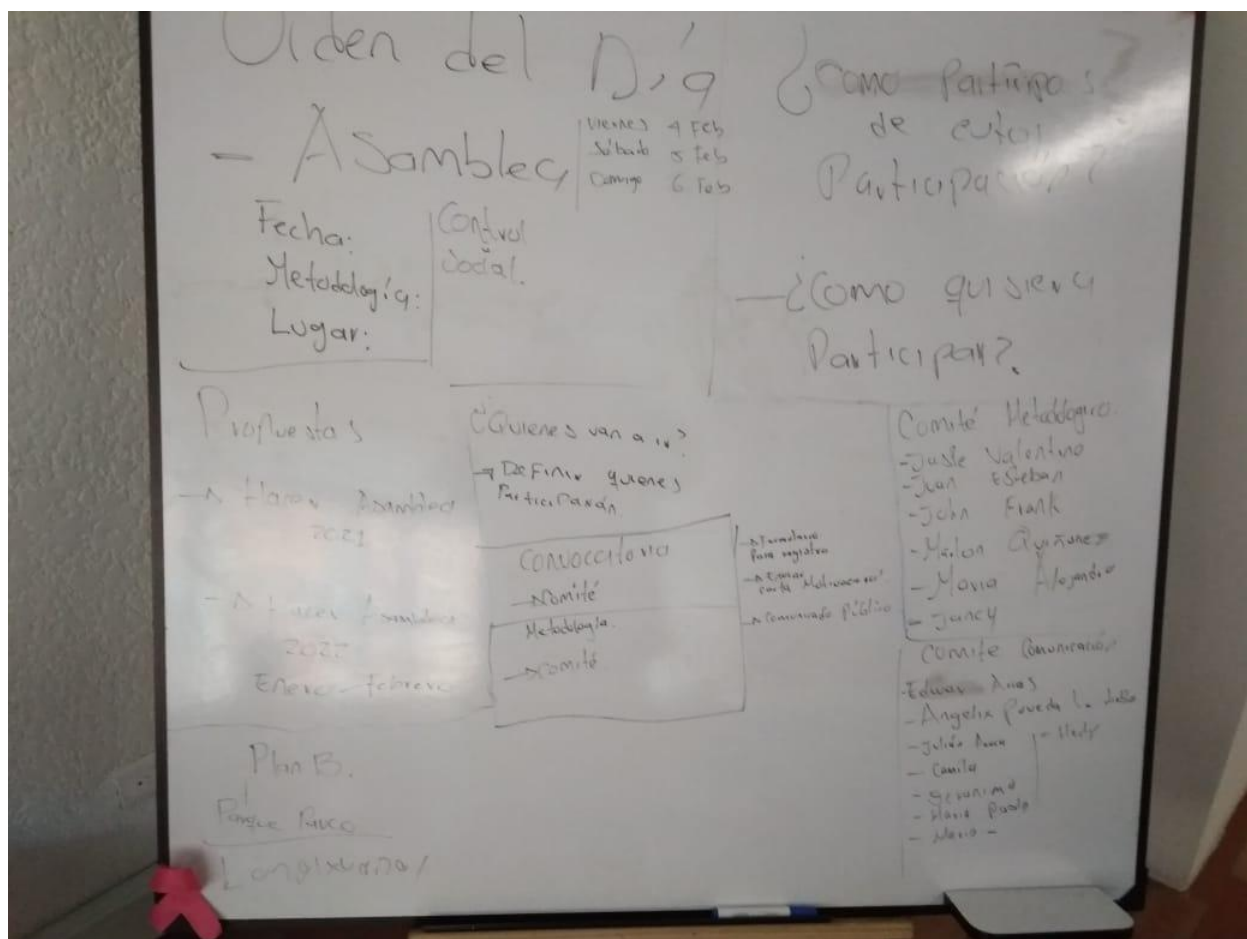 Orden del Día
- Asamblea
Viernes 4 Feb
Sábado 5 Feb
Domingo 6 Feb
Fecha:
Metodología:
Lugar:
Control
Social.
¿Como
de
Participación?
- ¿Como quisiera
Participar?
Propuestas
→ Hacer Asamblea
2021
→ Hacer Asamblea
2022
Enero - febrero
¿Quienes van a ir?
→ Definir quienes
Participarán
Convocatoria
→ Comité
Metodología
→ Comité
→ Formulario
Para registro
→ Enviar
carta Motivacional
→ Comunicado Público
Comité Metodológico
- Valentino
- Juan Esteban
- John Frank
- Quiñones
- Maria Alejandra
- Jancy
Comite Comunicación
- Edwar
- Angelix Poveda
- Julián
- Camila
- Geronimo
- Maria Paula
- Maria -
Plan B.
Parque